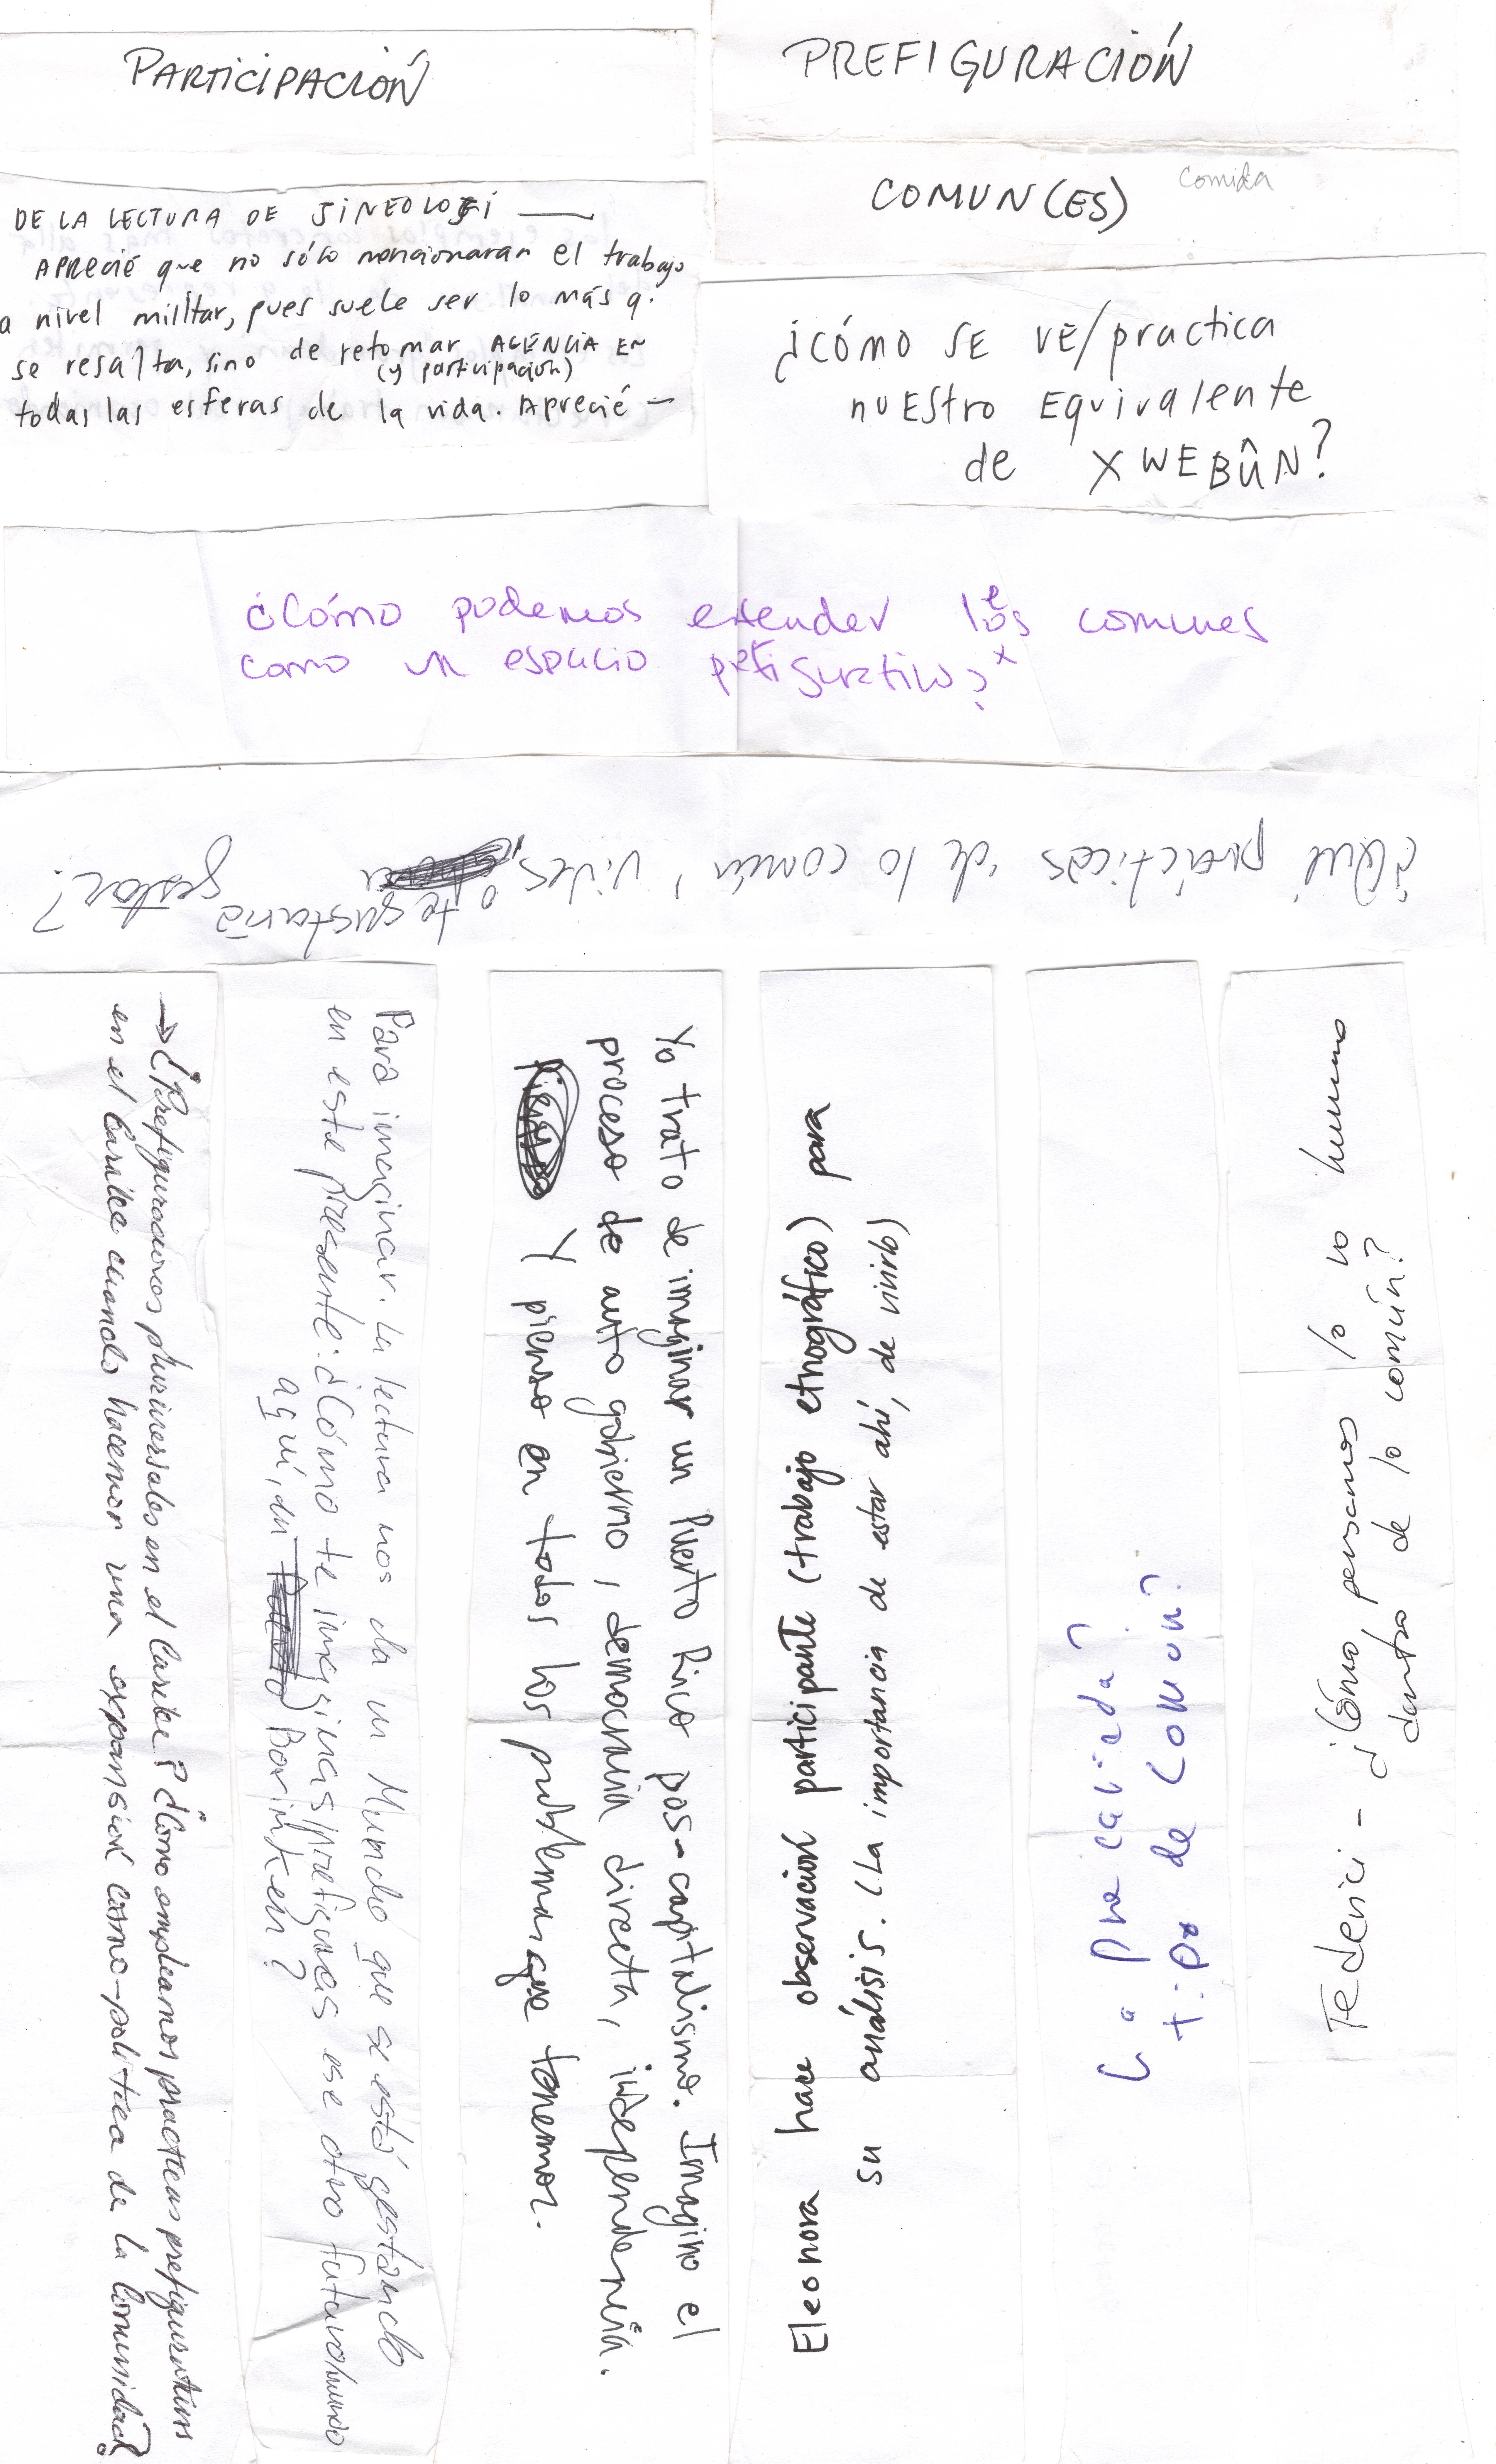 PARTICIPACIÓN
DE LA LECTURA DE JINEOLOJI —
APRECIÉ que no sólo mencionaran el trabajo
a nivel militar, pues suele ser lo más q.
se resalta, sino de retomar AGENCIA EN
(y participación)
todas las esferas de la vida. Aprecié —
PREFIGURACIÓN
COMUN(ES)
Comida
¿CÓMO SE VE/practica
nuestro Equivalente
de XWEBÛN?
¿Cómo podemos entender les comunes
como un espacio prefigurativo?
¿Qué prácticas de lo común, vives,
o te gustaría gestar?
→ ¿Prefiguraciones pluriversales en el Caribe? ¿Cómo empleamos practicas prefigurativas
en el Caribe cuando hacemos una expansión cosmo-política de la Comunidad?
Para imaginar. La lectura nos da un Mundo que se está gestando
en este presente: ¿Cómo te imaginas/prefiguras ese otro futuro/mundo
aquí, en Borinken?
Yo trato de imaginar un Puerto Rico pos-capitalismo. Imagino el
proceso de auto gobierno, democracia directa, independencia.
Y pienso en todos los problemas que tenemos.
Eleonora hace observación participante (trabajo etnográfico) para
su análisis. (La importancia de estar ahí, de vivirlo)
La precariedad?
tipo de Común?
Federici - ¿Cómo pensamos lo no humano
dentro de lo común?